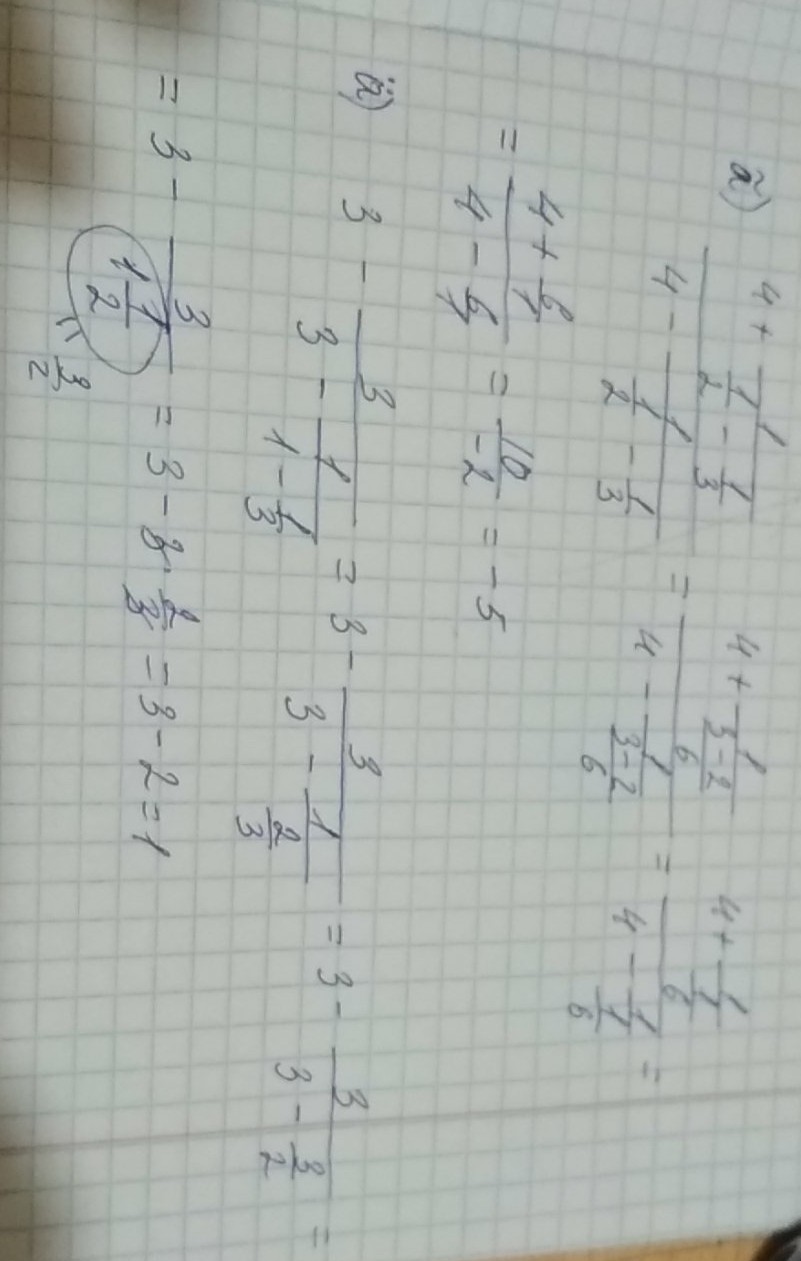 ã) (4 + 1/(1/2 − 1/3))/(4 − 1/(1/2 − 1/3)) = (4 + 1/((3−2)/6))/(4 − 1/((3−2)/6)) = (4 + 1/(1/6))/(4 − 1/(1/6)) =
= (4 + 6/1)/(4 − 6/1) = 10/−2 = −5
ä) 3 − 3/(3 − 1/(1 − 1/3)) = 3 − 3/(3 − 1/(2/3)) = 3 − 3/(3 − 3/2) =
= 3 − 3/(1 1/2) = 3 − 3 · 2/3 = 3 − 2 = 1
= 3/2